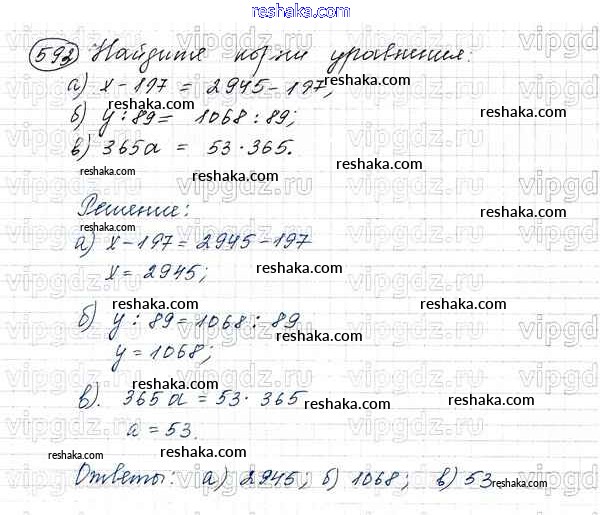 reshaka.com
592 Найдите корни уравнения:
а) x - 197 = 2945 - 197;
б) y : 89 = 1068 : 89;
в) 365a = 53 · 365.
Решение:
а) x - 197 = 2945 - 197
x = 2945;
б) y : 89 = 1068 : 89
y = 1068;
в). 365a = 53 · 365
a = 53.
Ответы: а) 2945; б) 1068; в) 53.